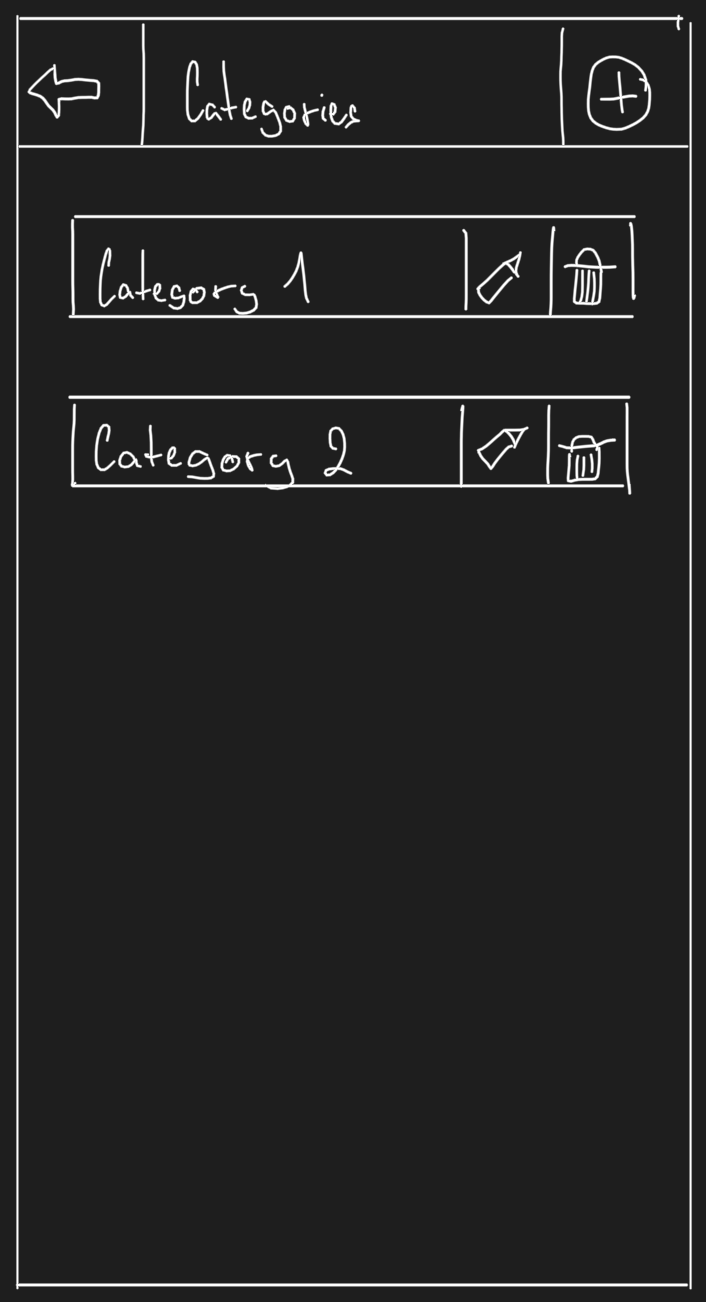 Categories
Category 1
Category 2